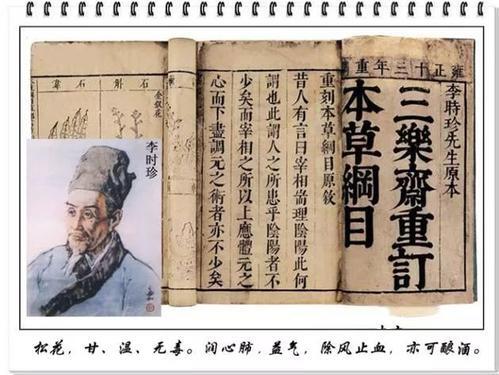 雍正十三年重
李時珍先生原本
三樂齋重訂
本草綱目
重刻本草綱目原敘
昔人有言曰宰相耑理陰陽此何
謂也此謂人之所患乎陰陽者不
少矣而宰相之所以上應體元之
心而下盡調元之術者亦不少矣
石斛
金釵花
石韋
李时珍
松花，甘、温、无毒。润心肺，益气，除风止血，亦可酿酒。